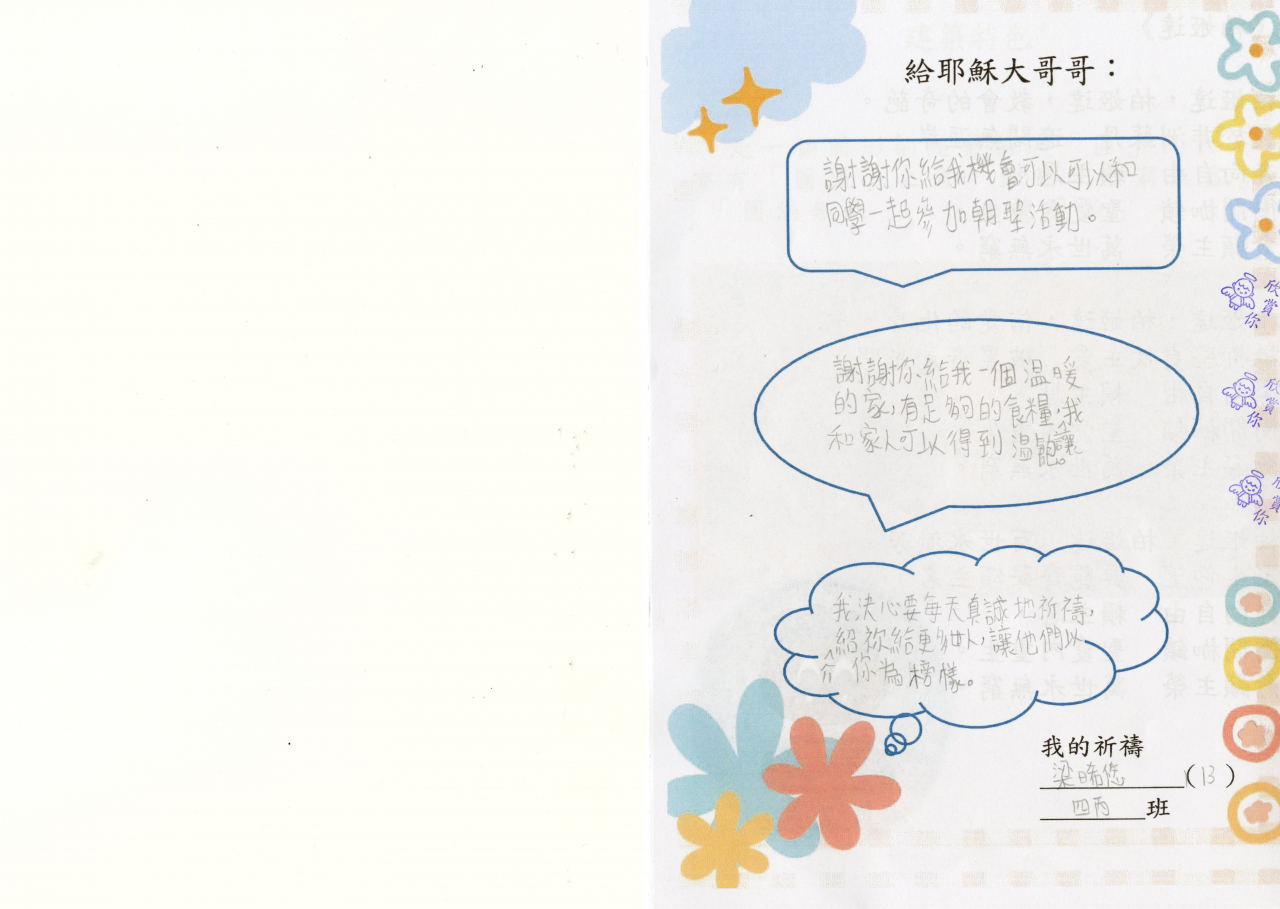 給耶穌大哥哥：
謝謝你給我機會可以可以和
同學一起參加朝聖活動。
謝謝你給我一個溫暖
的家，有足夠的食糧，我
和家人可以得到溫飽。
讓
我決心要每天真誠地祈禱，
紹祢給更多世人，讓他們以
介 你為榜樣。
我的祈禱
梁晞悠 (13)
四丙 班
欣賞你
欣賞你
欣賞你